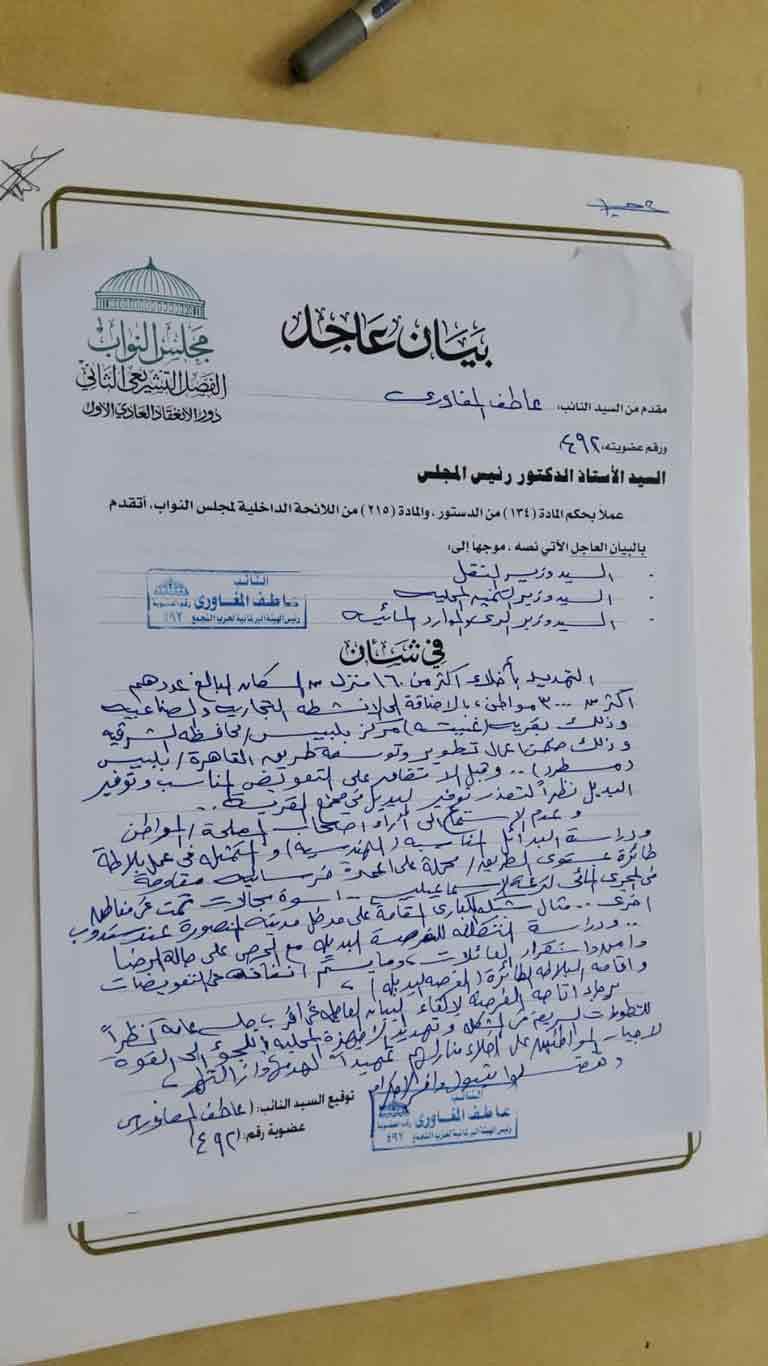 مجلس النواب
الفصل التشريعى الثانى
دور الانعقاد العادى الأول
بيان عاجل
مقدم من السيد النائب: عاطف المغاورى
ورقم عضويته: ٤٩٢
السيد الأستاذ الدكتور رئيس المجلس
عملاً بحكم المادة (١٣٤) من الدستور، والمادة (٢١٥) من اللائحة الداخلية لمجلس النواب، أتقدم
بالبيان العاجل الآتى نصه، موجها إلى:
- السيد وزير النقل
- السيد وزير التنمية المحلية
- السيد وزير الرى والموارد المائية
النائب
عاطف المغاورى رقم العضوية
رئيس الهيئة البرلمانية لحزب التجمع ٤٩٢
فى شأن
التهديد بأخلاء أكثر من ١٦٠ منزل من السكان البالغ عددهم
أكثر من ٣٠٠٠ مواطن، بالاضافة الى الانشطة التجارية والصناعية
وذلك بقرية (غيتة) مركز بلبيس / محافظة الشرقية
وذلك ضمن اعمال تطوير وتوسعة طريق القاهرة / بلبيس
وقبل الاتفاق على التعويض المناسب وتوفير
البديل نظراً لتعذر توفير البديل فى القرية ..
وعدم الاستماع الى اراء اصحاب المصلحة / المواطن
ودراسة البدائل المناسبة (الهندسية) والمتمثلة فى عمل بلاطة
طائرة بمستوى الطريق / محملة على اعمدة خرسانية مقاومة
فى المجرى المائى لترعة الاسماعيلية .. اسوة بحالات تمت فى مناطق
اخرى .. مثال الكبارى المقامة على مدخل مدينة المنصورة عند سندوب
.. ودراسة التكلفة للفرصة البديلة مع الحرص على حالة الرضا
وأمن واستقرار العائلات، وما يتم انفاقه فى التعويضات
واقامة البلاطة الطائرة (الفرصة البديلة)،
برجاء اتاحة الفرصة لالقاء البيان العاجل فى اقرب جلسة عامة نظراً
للتطورات السريعة فى المشكلة وتهديد الاجهزة المحلية اللجوء الى القوة
لاجبار المواطنين على اخلاء منازلهم تمهيداً لهدمها وازالتها،
وتفضلوا بقبول وافر الاحترام
توقيع السيد النائب: (عاطف المغاورى
عضوية رقم: (٤٩٢)
النائب
عاطف المغاورى رقم العضوية
رئيس الهيئة البرلمانية لحزب التجمع ٤٩٢